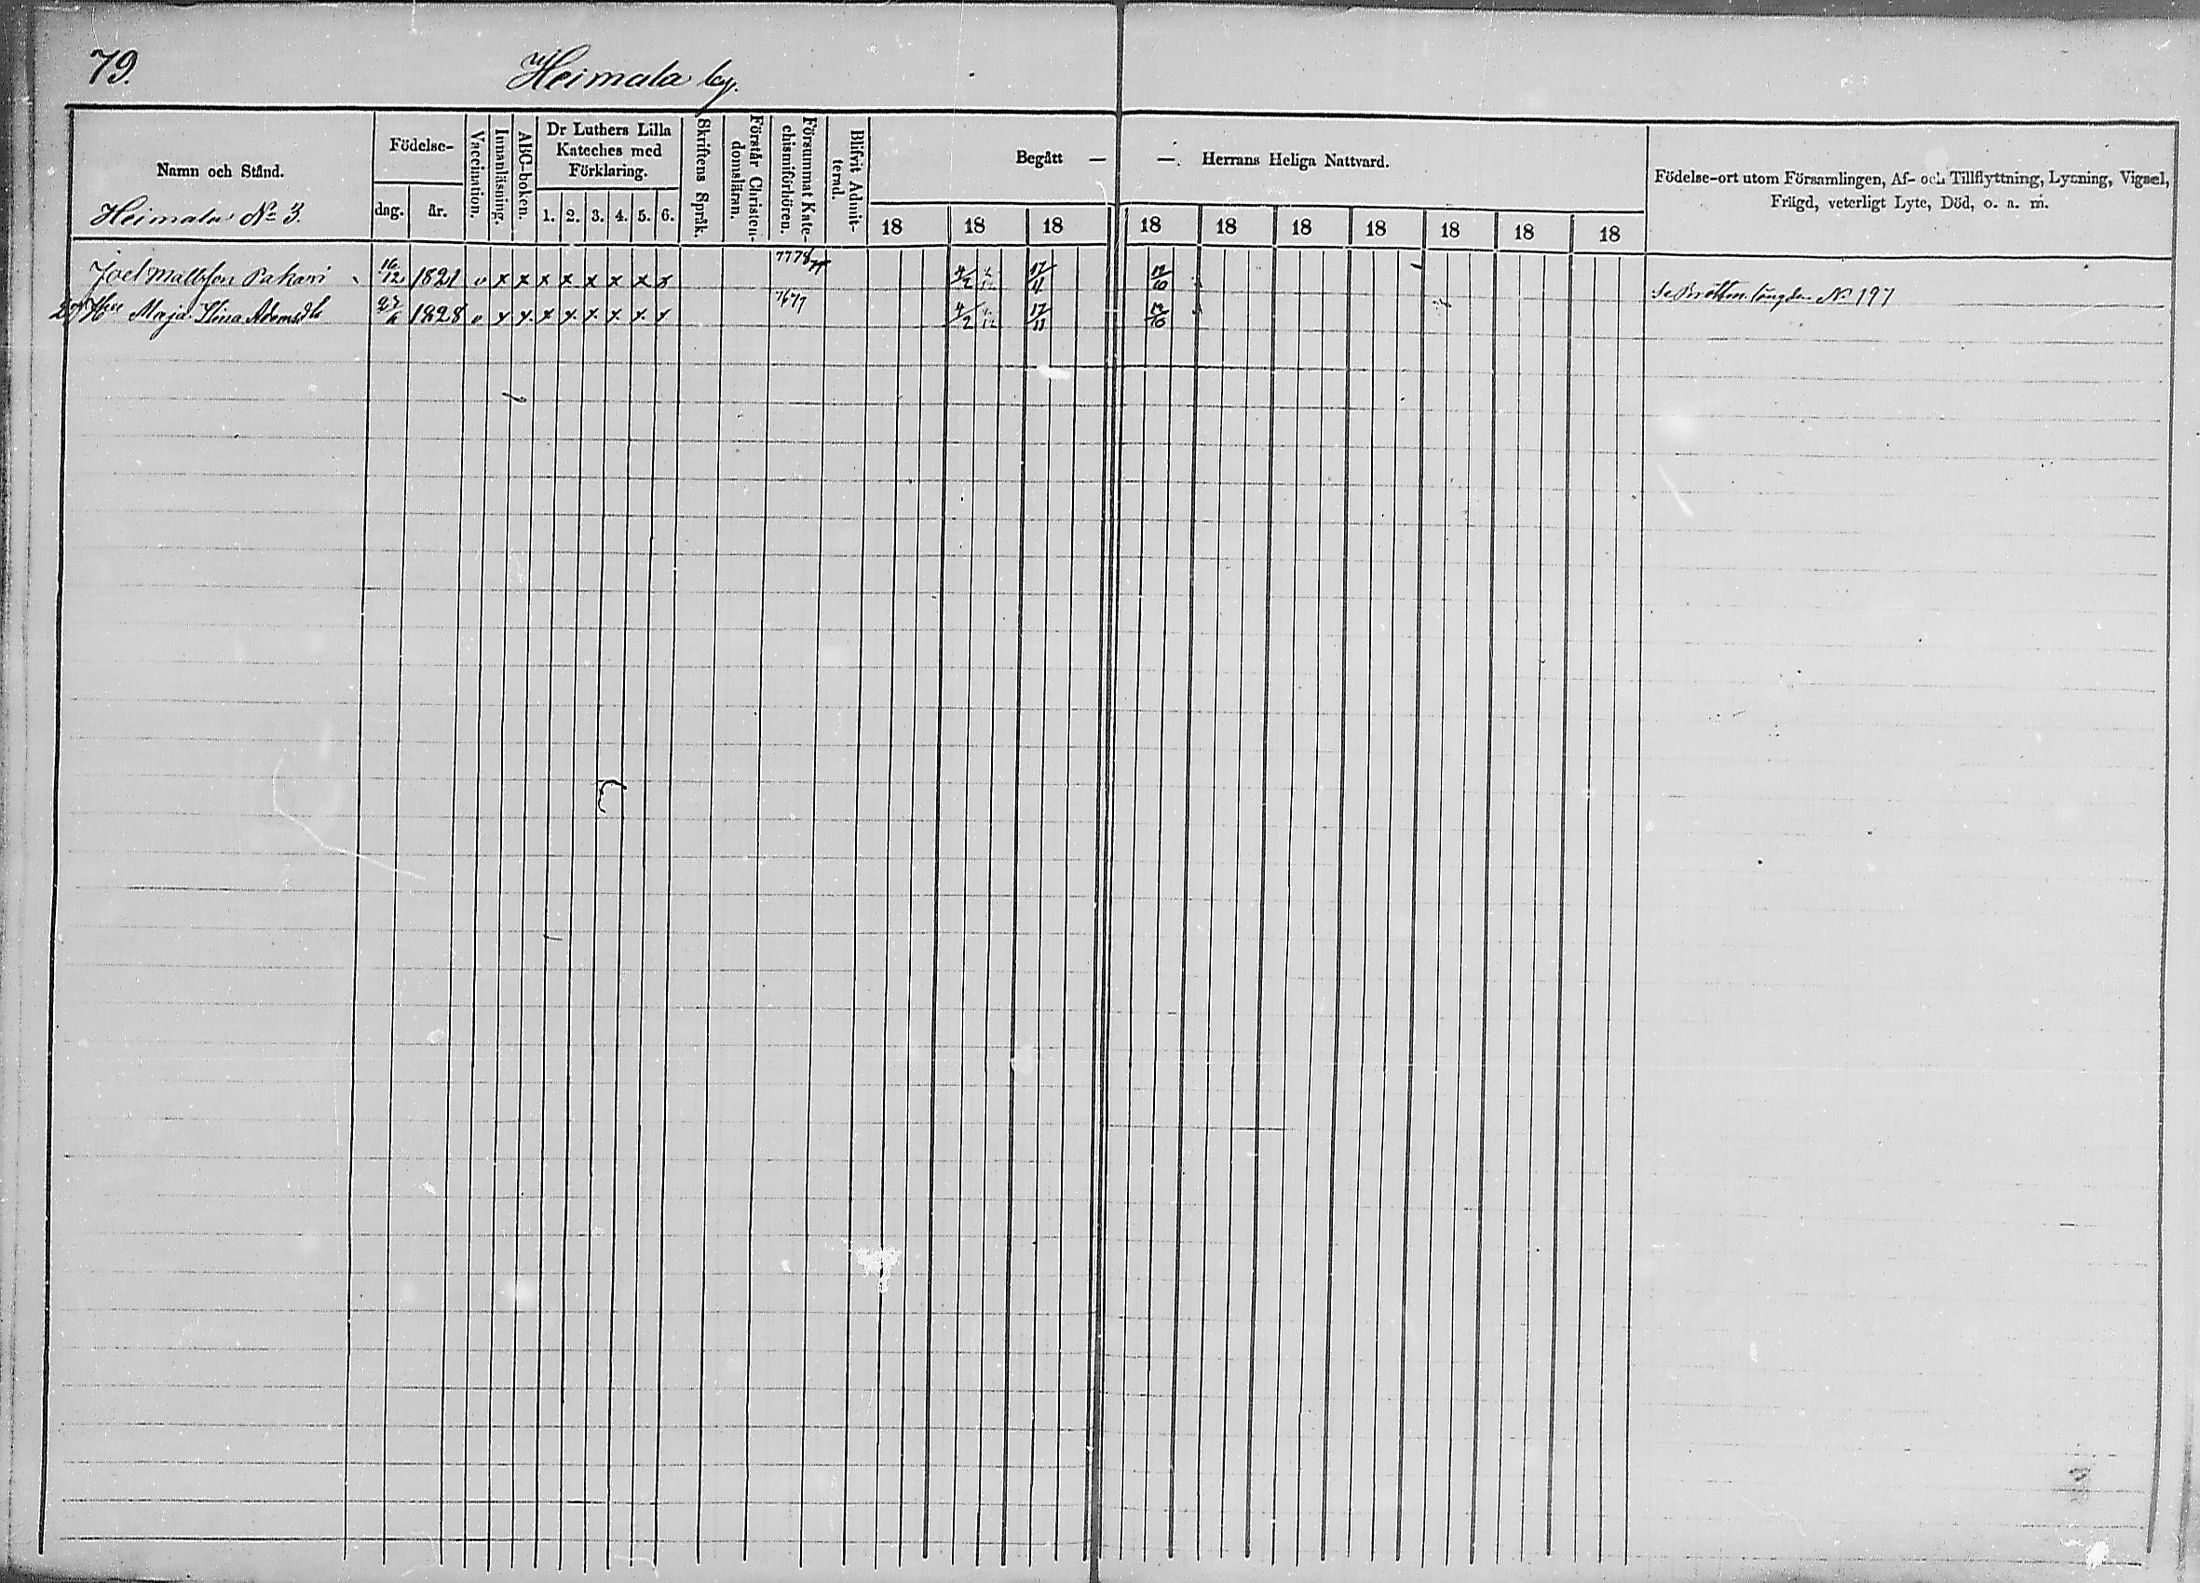 79.
Heimala by.
Namn och Stånd.
Heimala No 3.
Födelse-
dag.
år.
Vaccination.
Innanläsning.
ABC-boken.
Dr Luthers Lilla
Kateches med
Förklaring.
1. 2. 3. 4. 5. 6.
Skriftens Språk.
Förstår Christen-
domsläran.
Försummat Kate-
chismiförhören.
Blifvit Admit-
terad.
Begått — — Herrans Heliga Nattvard.
18 18 18 18 18 18 18 18 18 18
Födelse-ort utom Församlingen, Af- och Tillflyttning, Lysning, Vigsel,
Frägd, veterligt Lyte, Död, o. a. m.
Joel Pakari 16/12 1821 v x x x x x x x x 7778 4/2 17/11 17/10 No 197
Maja Stina Adamsdr 1828 v x x x x x x x x 7677 4/2 17/11 17/10